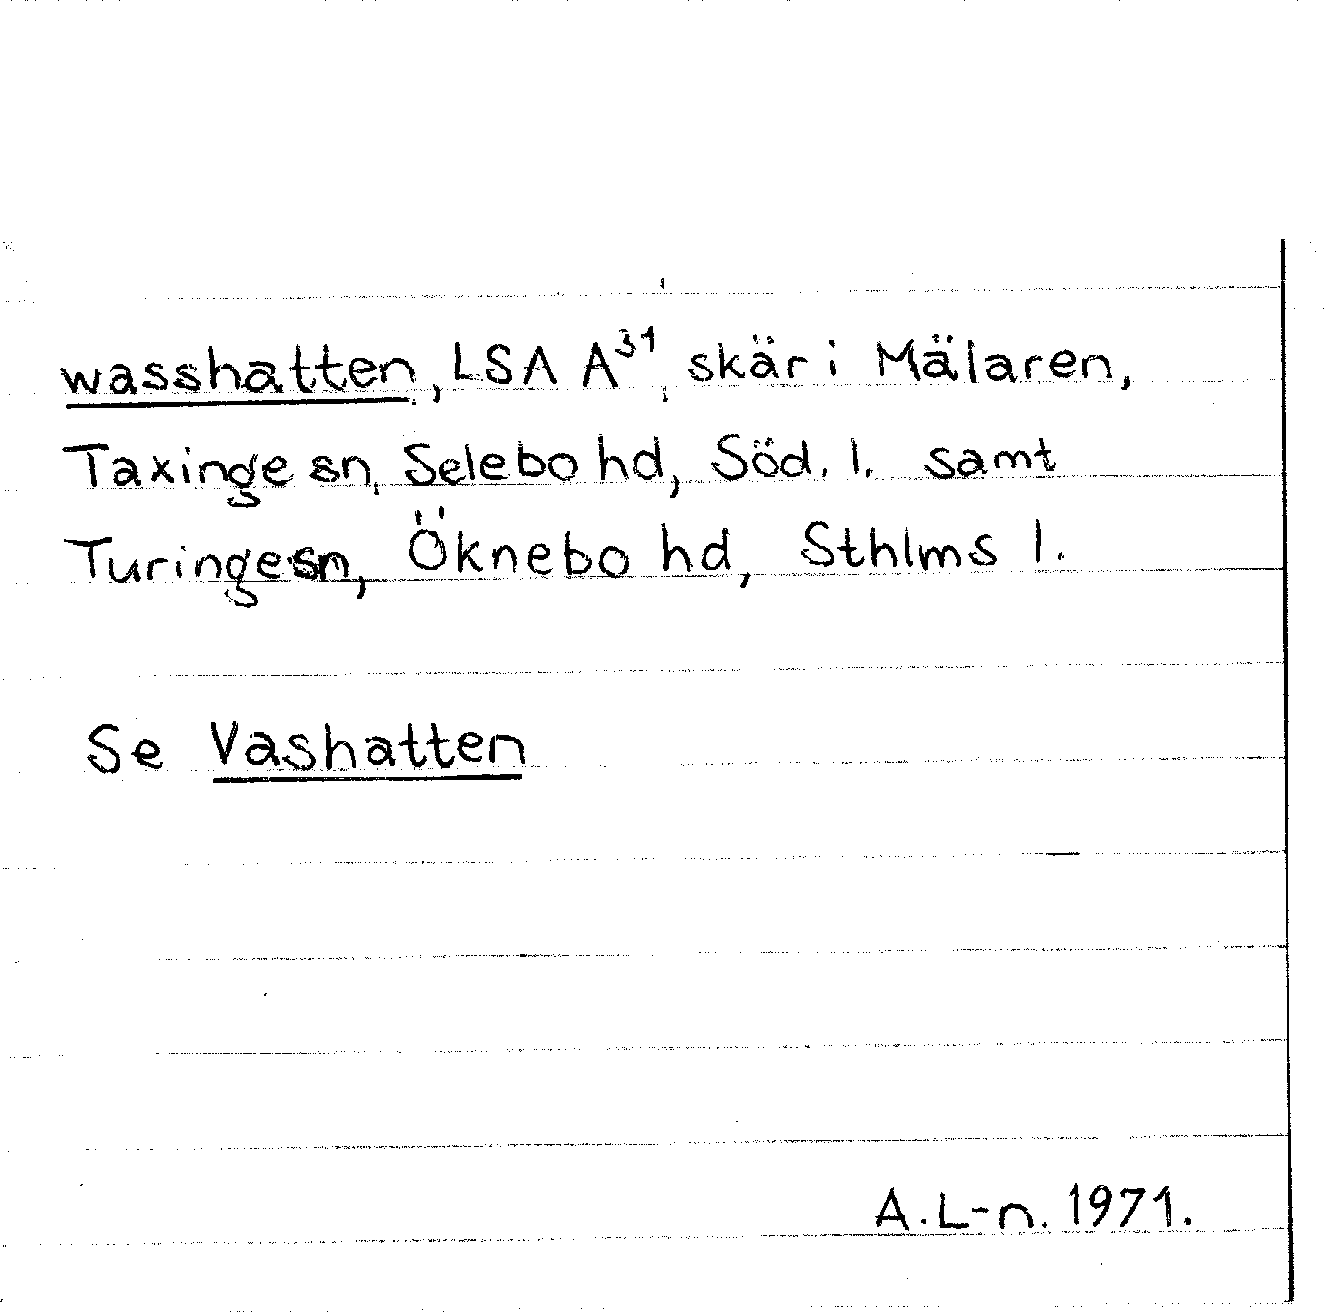 wasshatten, LSA A³¹, skär i Mälaren,
Taxinge sn, Selebo hd, Söd. l. samt
Turinge sn, Öknebo hd, Sthlms l.
Se Vashatten
A. L-n. 1971.